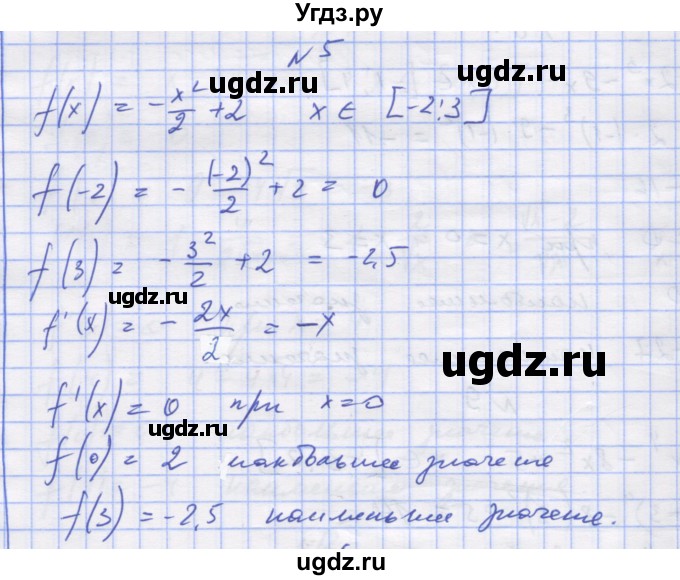 Угдз.ру
№5
f(x) = -x²/2 + 2 x ∈ [-2;3]
ugdz.ru
ugdz.ru
f(-2) = - (-2)²/2 + 2 = 0
f(3) = - 3²/2 + 2 = -2,5
f'(x) = - 2x/2 = -x
ugdz.ru
ugdz.ru
f'(x) = 0 при x=0
ugdz.ru
f(0) = 2 наибольшее значение
f(3) = -2,5 наименьшее значение.
ugdz.ru
ugdz.ru